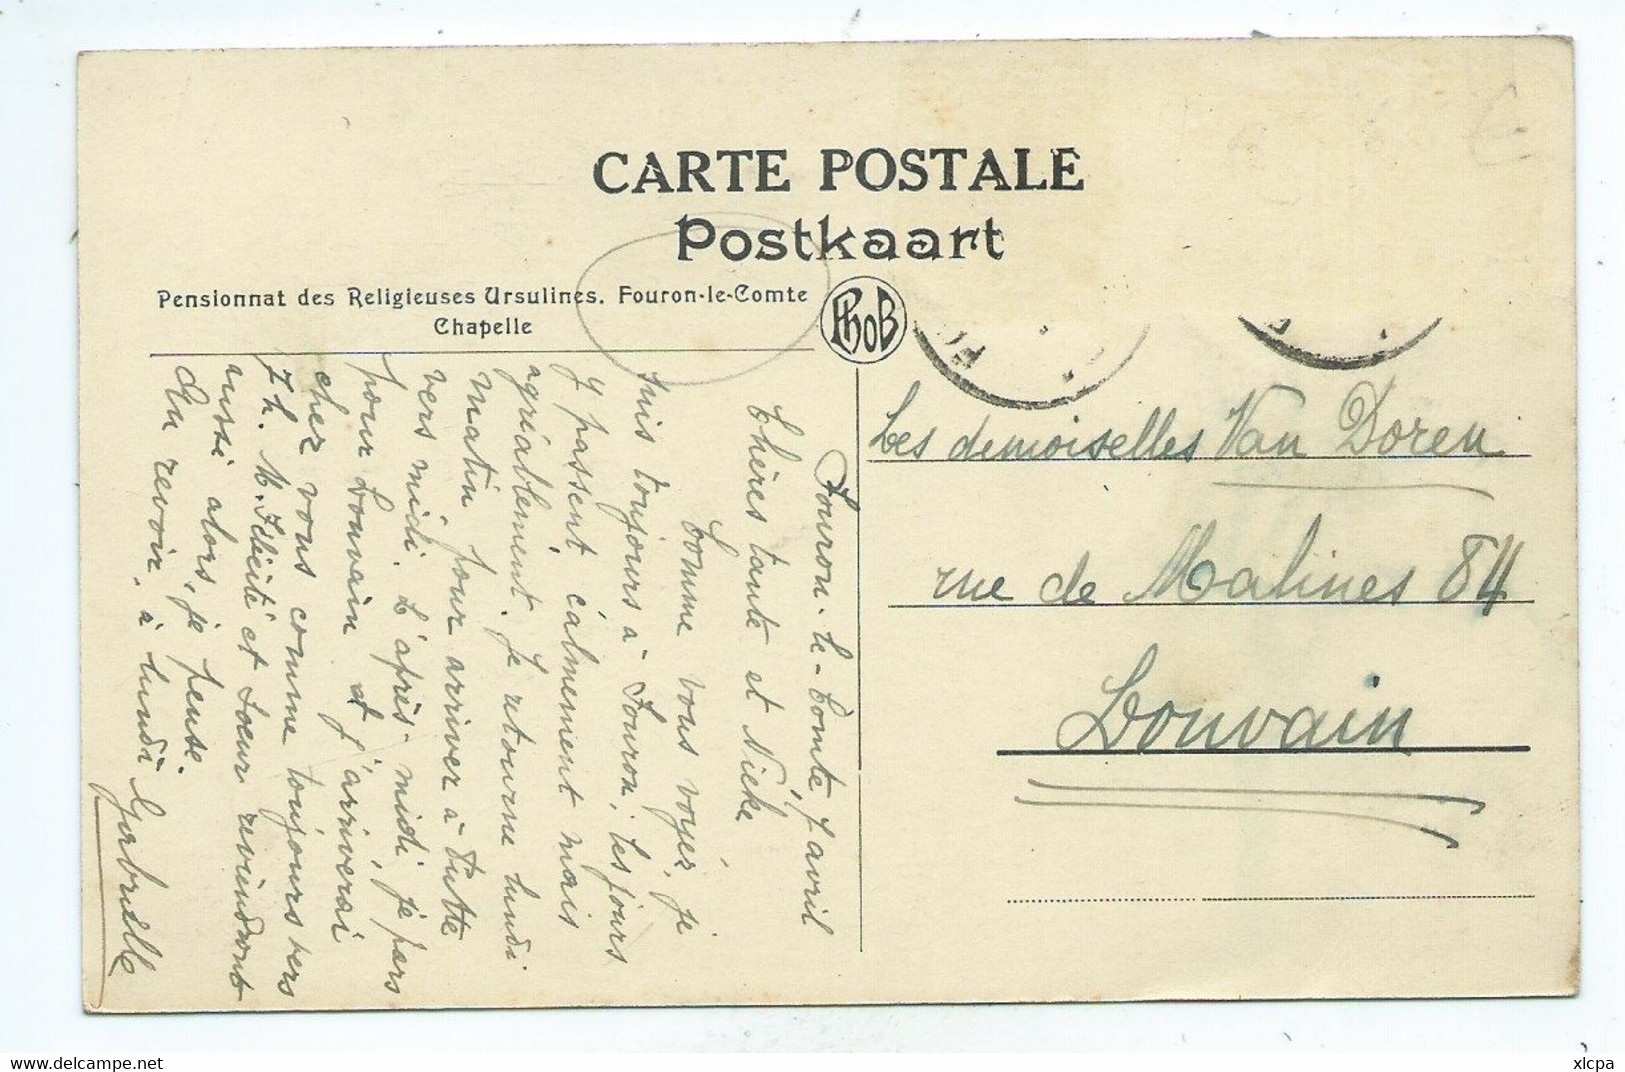 CARTE POSTALE
Postkaart
Pensionnat des Religieuses Ursulines. Fouron-le-Comte
Chapelle
PhoB
Fouron-le-Comte, 7 avril
Chères tante et Nieke
Comme vous voyez, je
suis toujours à Fouron, les jours
y passent câlmement mais
agréablement. Je retourne lundi
matin pour arriver à
vers midi. L'après-midi je pars
pour Louvain et j'arriverai
chez vous comme toujours vers
7 h. M. Félicité et Soeur reviendront
aussi alors, je pense.
Au revoir, à lundi
Gabrielle
Les demoiselles Van Doren
rue de Malines 84
Louvain
xlcpa